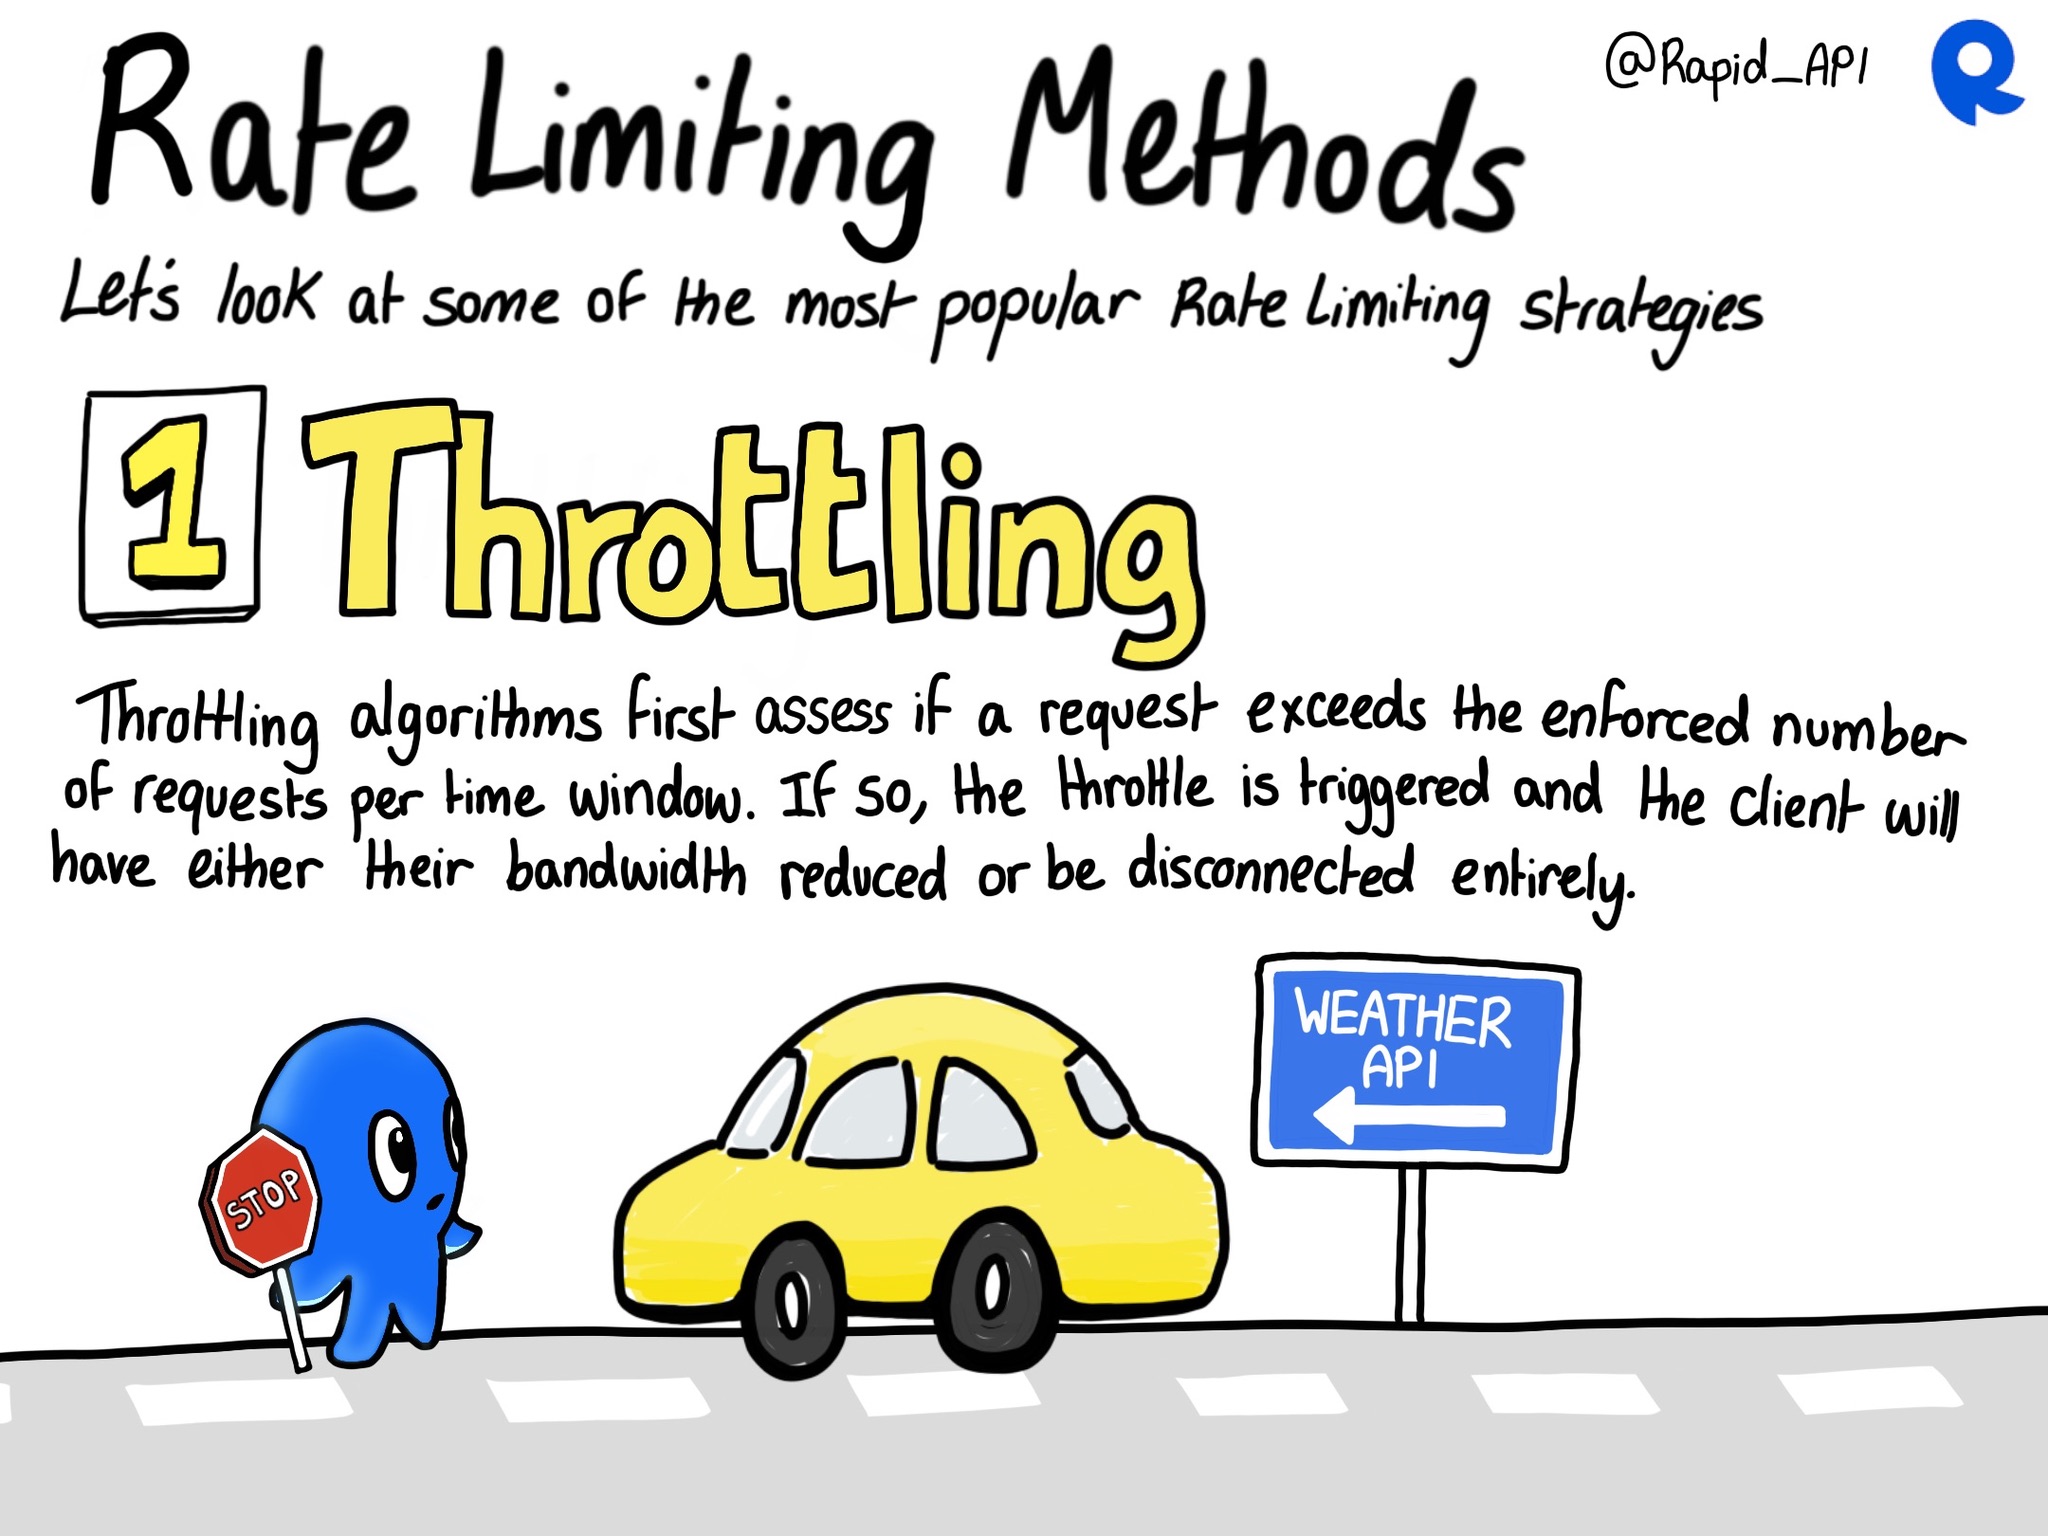 Rate Limiting Methods
@Rapid_API
Let's look at some of the most popular Rate Limiting strategies
1 Throttling
Throttling algorithms first assess if a request exceeds the enforced number
of requests per time window. If so, the throttle is triggered and the client will
have either their bandwidth reduced or be disconnected entirely.
WEATHER
API
STOP